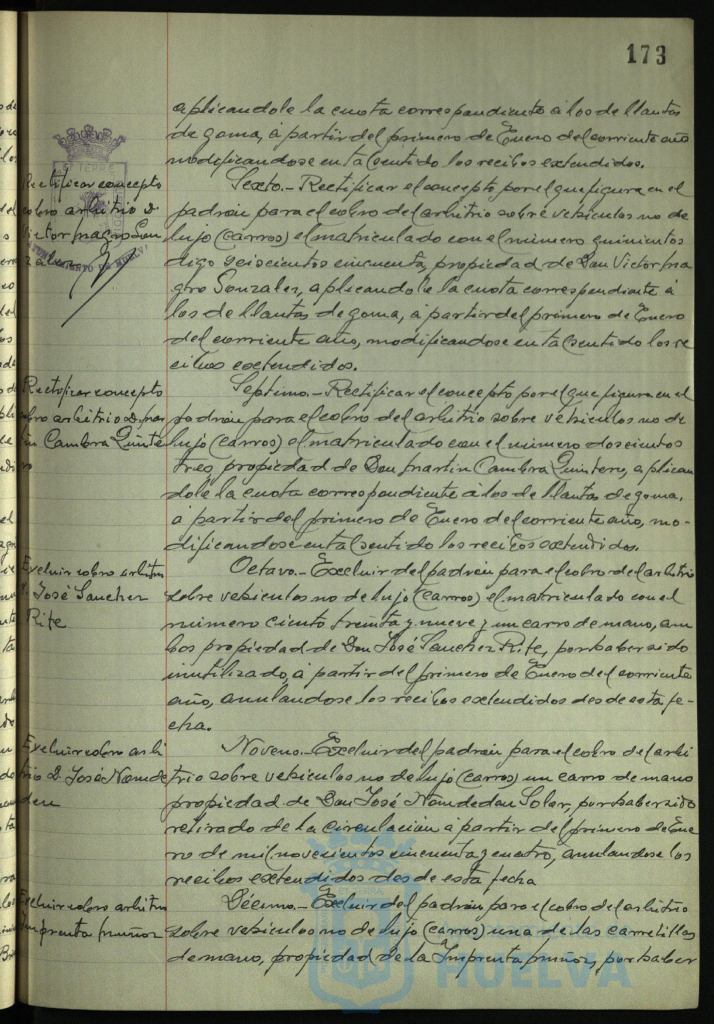 173
aplicandole la cuota correspondiente á los de llantas
de goma, á partir del primero de Enero del corriente año
modificandose en tal sentido los recibos extendidos.
Rectificar concepto
cobro arbitrio D.
Victor Magro Gon
zalez
Sexto.- Rectificar el concepto por el que figura en el
padrón para el cobro del arbitrio sobre vehiculos no de
lujo (carros) el matriculado con el número quinientos
digo seiscientos cincuenta, propiedad de Don Victor Ma
gro Gonzalez, aplicandole la cuota correspondiente á
los de llantas de goma, á partir del primero de Enero
del corriente año, modificandose en tal sentido los re
cibos extendidos.
Rectificar concepto
cobro arbitrio D. Mar
tin Cambra Quinte
ro
Septimo.- Rectificar el concepto por el que figura en el
padrón para el cobro del arbitrio sobre vehiculos no de
lujo (carros) el matriculado con el número doscientos
tres, propiedad de Don Martin Cambra Quintero, aplican
dole la cuota correspondiente á los de llantas de goma,
á partir del primero de Enero del corriente año, mo-
dificandose en tal sentido los recibos extendidos.
Excluir cobro arbitrio
D. José Sanchez
Rite
Octavo.- Excluir del padrón para el cobro del arbitrio
sobre vehiculos no de lujo (carros) el matriculado con el
número ciento treinta y nueve y un carro de mano, am
bos propiedad de Don José Sanchez Rite, por haber sido
inutilizado, á partir del primero de Enero del corriente
año, anulandose los recibos extendidos desde esta fe-
cha.
Excluir cobro arbi
trio D. José Namde
deu
Noveno.- Excluir del padrón para el cobro del arbi
trio sobre vehiculos no de lujo (carros) un carro de mano
propiedad de Don José Namdedeu Soler, por haber sido
retirado de la circulación á partir del primero de Ene
ro de mil novecientos cincuenta y cuatro, anulandose los
recibos extendidos desde esta fecha
Excluir cobro arbitrio
Imprenta Muñoz
Décimo.- Excluir del padrón para el cobro del arbitrio
sobre vehiculos no de lujo (carros) una de las carretillas
de mano, propiedad de la Imprenta Muñoz, por haber
HUELVA